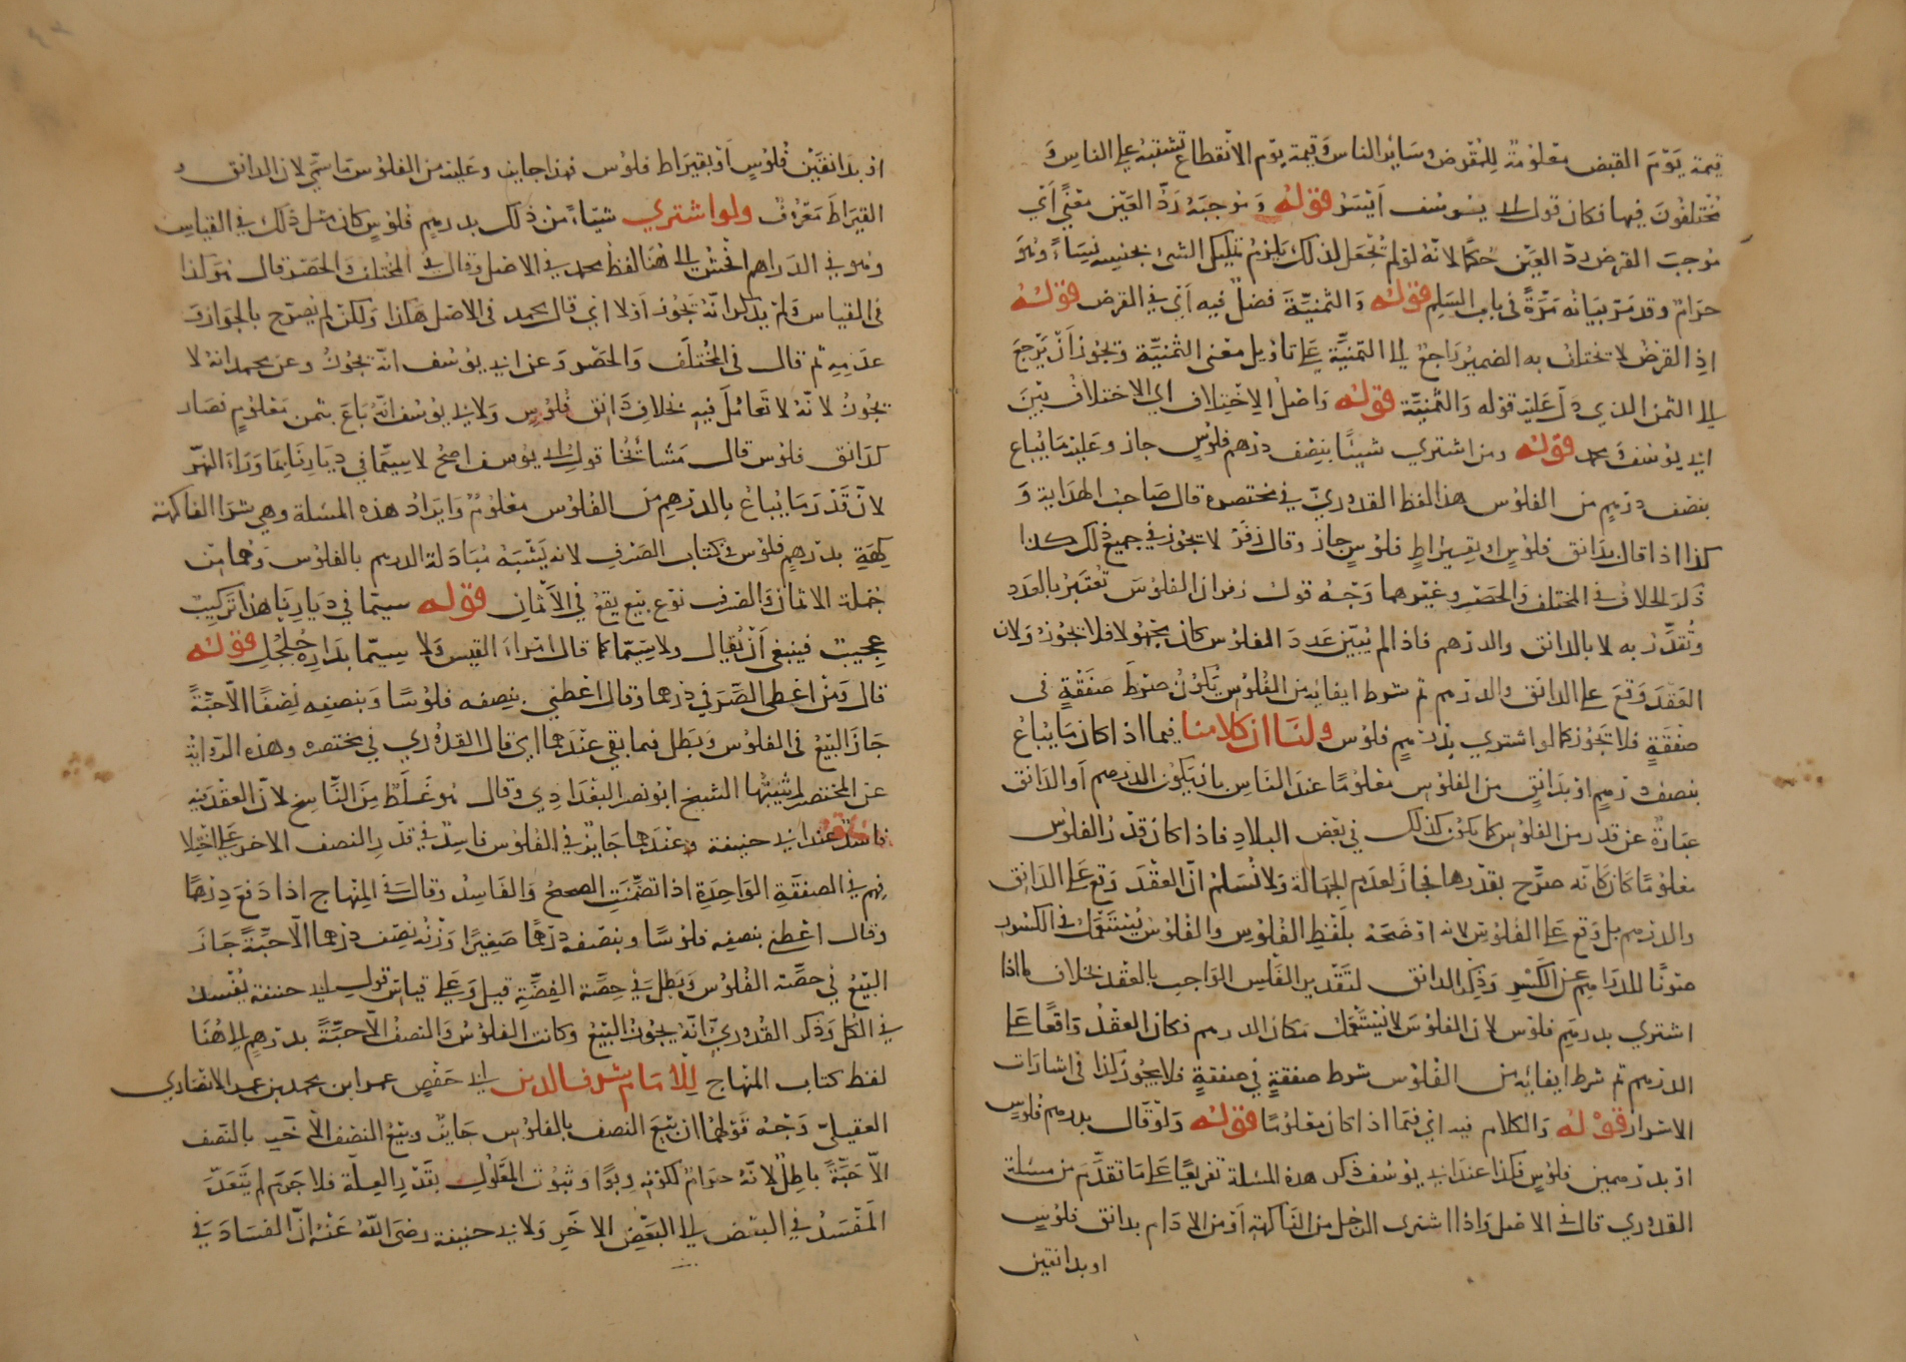 قيمة يَوْمَ القبض معْلوْمة للمُقرض وسَاير الناس وَقيمة يوْم الانْقطاع تشتبهُ على الناسِ وَ
مُختلفوُنَ فيها فكان قول ابي يوسُف اَيْسَرُ قوله وَمُوجبَهُ رَدُّ العَيْن مَعْنىً اَيْ
مُوجبَ القرض ردّ العَيْن حُكمًا لانّهُ لوْ لم تُجعَل لذلك يَلزمُ تمليك الشئ بجنسِه نَسِيَاءً وَهُوَ
حرَامٌ وقد مَرّ بيَانهُ مَرّةً في باب السَلم قوله وَالثمنيّة فضلٌ فيه اَيْ في القرض قوله
اذِ القرضُ لا يختلف به الضميرُ رَاجعٌ الى الثمنيّة على تاويل معْنى الثمنيّة ويجُوز اَنْ يَرْجعَ
الى الثمن الذي دَلّ عَليْه قوْله وَالثمنيّة قوله وَاصْلُ الاِختِلاف اي الاختلاف بَيْنَ
ابي يوْسُف وَمحمد قوله ومن اشتري شيئًا بنصْف درْهم فلوُسٍ جاز وعَليْه مَا يُباع
بنصف درْهمٍ من الفلوُس هذا لفظ القدُوريّ في مختصره قال صَاحبُ الهدَاية وَ
كذا اذا قال بدَانق فلوُسٍ او بقيْراطِ فلوْسٍ جاز وقال زفَرْ لا يجُوز في جميع ذلك كذا
ذكرَ الخلاف في المختلف وَالحَصْر وغيْرهما وَجْهُ قول زفر ان الفلوُسَ تُعْتَبَرُ بالعدد
وتُقدّرُ به لا بالدانق والدرْهم فاذا لم يُبيّن عَددَ الفلوُس كان مجهُولا فلا يجُوزُ وَلان
العَقدَ وَقعَ على الدانق والدرهم ثم شرط ايفائه من الفُلوُس يَكوُنُ شرْط صَفقةٍ في
صفقةٍ فلا تجُوز كما لو اشتري بدرْهمٍ فلوُس ولنا ان كلامنا فيما اذا كان مَا يُباعُ
بنصف درْهمٍ اوْ بدَانقٍ من الفلوُس معْلومًا عندَ الناس بان يَكوُن الدرهم اَو الدانق
عبَارةً عن قدر من الفلوْس كما يكوُن كذلك في بعْض البلادِ فاذا كان قدْرُ الفلوُس
معلوْمًا كان كانّه صرّح بقدْرها فجاز لعدم الجهَالة وَلا نُسَلمُ انّ العقْدَ وَقع على الدانِق
والدرهم بل وَقع على الفلوُس لانه اوْضحَهُ بلفظِ الفلوُس والفلوُسُ يُسْتَعْمَلُ في الكسُور
صَوْنًا للدراهم عن الكَسْرِ وَذِكرُ الدانق لتَقْدير الفَلِس الوَاجب بالعقْد بخلاف ما اذا
اشتري بدرهم فلوْس لان الفلوْسَ لا يُسْتَعْمَلُ مَكان الدرهم فكان العقْدُ وَاقعًا على
الدرهم ثم شرط ايفائه من الفُلوُس شرط صفقةٍ في صفقةٍ فلا يجوُز كذا في اشارات
الاسرار قوله وَالكلامُ فيه اي فيمَا اذا كان معْلومًا قوله وَلوْ قال بدرهم فلوُسٍ
اوْ بدرْهمين فلوُسٍ فكذا عندَ ابي يوْسُف ذكر هذه المسْئلة تفريعًا على مَا تقدّم من مسْئلة
القدوري قال في الاصْل وَاذا اشترى الرجُل من الفاكهةِ اَوْ من الادَام بدانق فلوُسٍ
او بدانقين
اوْ بدَانقَيْن فلوُسٍ اَوْ بقيرَاط فلوُس فهذا جايز وعَليْه من الفلوُس مَا سمّي لان الدانق و
القيرَاط مَعْرُوفٌ ولو اشتري شيَاءً من ذلك بدرهمٍ فلوُسٍ كان مثل ذلك في القياس
وهو في الدَراهم افْحشُ الى هُنا لفظ محمد في الاصْل وقال في المختلف وَالحَصْر قال هُوَ كذا
في القياس وَلم يذكر انّه يجُوز اَوْ لا اي قال محمد في الاصْل هَكذا وَلكنْ لم يُصَرّح بالجَواز وَ
عَدَمِهِ ثم قال في المُختلَف وَالحَصْر وَعن ابي يوُسُف انّه يجُوزُ وعن محمد انهُ لا
يجُوزُ لانّهُ لا تَعَامُلَ فيهِ بخلافِ دَانق فلوُسٍ وَلابي يوُسُف انّهُ بَاعَ بثمن مَعْلومٍ فصَار
كدَانق فلوُس قال مَشائخُنا قولُ ابي يوُسف اصَحُّ لا سِيّمَا في ديَارِنَا بمَا وَرَاءَ النهْر
لانّ قَدْرَ مَا يُبَاعُ بالدرْهمِ من الفلوُس معْلومٌ وَايرَادُ هذه المسْئلة وهي شرَا الفاكهة
كهةِ بدرْهمٍ فلوُس في كتاب الصَرْف لانه يَشْبَهُ مُبَادَلة الدرهم بالفلوُس وَهُمَا مِن
جُملة الاثمان وَالصَرف نوْع بيْع يقعُ في الاَثْمان قوله سيّما في ديَارِنَا هذا ترَكيبٌ
عجيبٌ فينبغي اَنْ يُقال ولا سِيّما كما قال امْراءُ القيْس وَلا سِيّما بدَارة جُلجُل قوله
قال وَمَنْ اعْطى الصَّيْرَفيّ درْهما وَقال اعْطني بنصفه فلوُسًا وَبنصفِه نِصْفًا الّا حَبّةً
جَازَ البَيْعُ في الفلوُس وَبَطلَ فيما بَقي عنْدَهما اي قال القدُوري في مختصره وهذه الرّوَاية
عن المختصر لم يُثبتْها الشيخ ابو نصر البغْدَادي وَقال هُوَ غلَطٌ مِنَ النّاسِخ لانّ العقْدَ فيه
فاسدٌ عند ابي حنيفة وعنْدَهما جَايزٌ في الفلوُس فاسِدٌ في قدْرِ النصف الاخر على اخْتِلا
فِهم في الصفقةِ الوَاحدَةِ اذا تضمّنَتِ الصحيحَ وَالفَاسِدَ وقال في المِنْهاج اذا دَفعَ دِرْهمًا
وَقال اعْطني بنصفِه فلوْسًا وبنصفه دِرْهمًا صَغِيْرًا وَزْنُهُ نِصْف درْهم الّا حَبّةً جَازَ
البَيْعُ في حصّة الفلوُس وَبَطلَ في حِصّة الفِضّةِ قيل وَعَلى قيَاس قول ابي حنيفة يُفْسدُ
في الكل وَذَكر القُدوريّ انّهُ يجُوز البَيْعُ وكانت الفلوْسُ وَالنصفُ الّا حَبّةً بدرْهمٍ الى هُنَا
لفظ كتاب المنْهَاج للامَام شرف الدين ابي حَفْصٍ عمر ابن محمد بن عمر الانصَاري
العقيليّ وَجْهُ قَوْلهمَا ان بَيْعَ النصف بالفلوُس جَايزٌ وبيْعُ النصف الاخر بالنصف
الّا حَبّةً باطلٌ لانّهُ حرَامٌ لكونِه رِبوًا وَثبوُت المَعْلوُل بقدْرِ العِلة فلا جَرَمَ لم يَتَعَدّ
المُفْسِدُ في البَعْض الى البَعْض الاخَرِ وَلابي حنيفة رضيَ اللّهُ عَنْهُ انّ الفسَادَ في